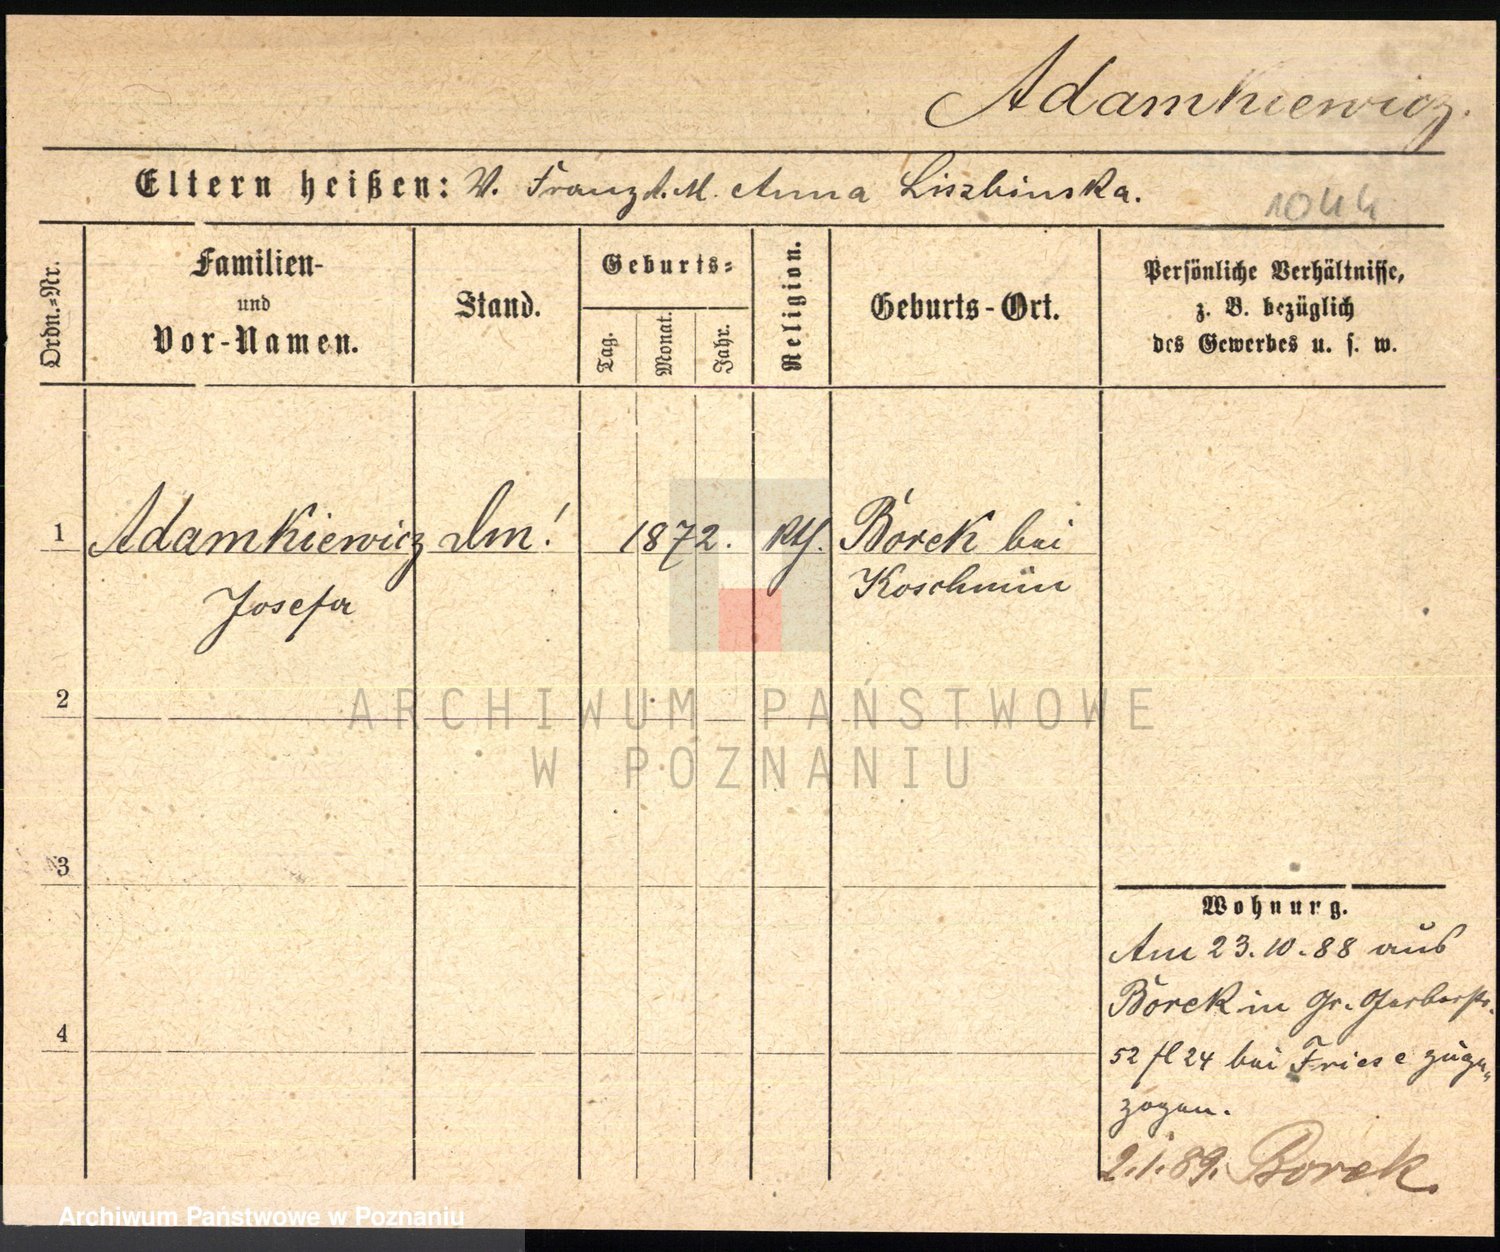 Adamkiewicz.
Eltern heißen: V. Franz d. M. Anna Liszbinska.
1044
Ordn.=Nr.
Familien-
und
Vor-Namen.
Stand.
Geburts=
Tag.
Monat.
Jahr.
Religion.
Geburts-Ort.
Persönliche Verhältnisse,
z. B. bezüglich
des Gewerbes u. s. w.
1 Adamkiewicz 1872. Kth. Borek bei
Josefa Koschmin
2
ARCHIWUM PAŃSTWOWE
W POZNANIU
3
Wohnung.
Am 23.10.88 aus
Borek in Gr. Gerberstr.
4
52 fl 24 bei Friese zuge„
zogen.
2.1.89. Borek.
Archiwum Państwowe w Poznaniu